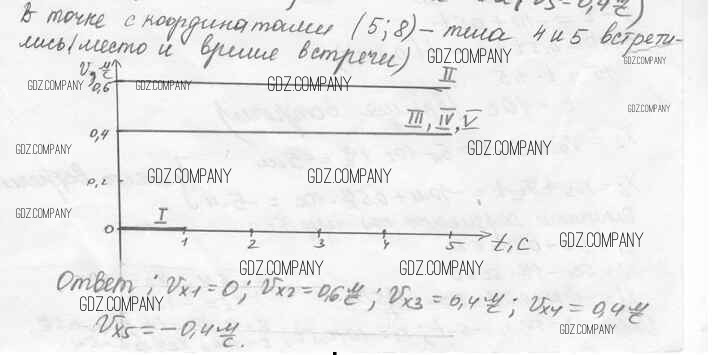 (V5 = 0,4 м/с)
В точке с координатами (5; 8) – тела 4 и 5 встрети-
лись (место и время встречи)
GDZ.COMPANY
GDZ.COMPANY
V, м/с
II
GDZ.COMPANY
GDZ.COMPANY
GDZ.COMPANY
0,6
GDZ.COMPANY
III, IV, V
0,4
GDZ.COMPANY
GDZ.COMPANY
0,2
GDZ.COMPANY
GDZ.COMPANY
GDZ.COMPANY
I
0
1 2 3 4 5 t, с
GDZ.COMPANY
GDZ.COMPANY
GDZ.COMPANY
Ответ: Vx1 = 0; Vx2 = 0,6 м/с; Vx3 = 0,4 м/с; Vx4 = 0,4 м/с
GDZ.COMPANY
Vx5 = – 0,4 м/с.
GDZ.COMPANY